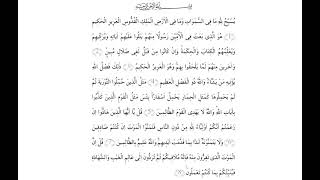 بِسْمِ اللَّهِ الرَّحْمَنِ الرَّحِيمِ
يُسَبِّحُ لِلَّهِ مَا فِى السَّمَوَاتِ وَمَا فِى الْأَرْضِ الْمَلِكِ الْقُدُّوسِ الْعَزِيزِ الْحَكِيمِ
﴿١﴾ هُوَ الَّذِى بَعَثَ فِى الْأُمِّيِّينَ رَسُولًا مِنْهُمْ يَتْلُوا عَلَيْهِمْ آيَاتِهِ وَيُزَكِّيهِمْ
وَيُعَلِّمُهُمُ الْكِتَابَ وَالْحِكْمَةَ وَإِنْ كَانُوا مِنْ قَبْلُ لَفِى ضَلَالٍ مُبِينٍ ﴿٢﴾
وَآخَرِينَ مِنْهُمْ لَمَّا يَلْحَقُوا بِهِمْ وَهُوَ الْعَزِيزُ الْحَكِيمُ ﴿٣﴾ ذَلِكَ فَضْلُ اللَّهِ
يُؤْتِيهِ مَنْ يَشَاءُ وَاللَّهُ ذُو الْفَضْلِ الْعَظِيمِ ﴿٤﴾ مَثَلُ الَّذِينَ حُمِّلُوا التَّوْرَيةَ ثُمَّ
لَمْ يَحْمِلُوهَا كَمَثَلِ الْحِمَارِ يَحْمِلُ أَسْفَارًا بِئْسَ مَثَلُ الْقَوْمِ الَّذِينَ كَذَّبُوا
بِآيَاتِ اللَّهِ وَاللَّهُ لَا يَهْدِى الْقَوْمَ الظَّالِمِينَ ﴿٥﴾ قُلْ يَا أَيُّهَا الَّذِينَ هَادُوا إِنْ
زَعَمْتُمْ أَنَّكُمْ أَوْلِيَاءُ لِلَّهِ مِنْ دُونِ النَّاسِ فَتَمَنَّوُا الْمَوْتَ إِنْ كُنْتُمْ صَادِقِينَ
﴿٦﴾ وَلَا يَتَمَنَّوْنَهُ أَبَدًا بِمَا قَدَّمَتْ أَيْدِيهِمْ وَاللَّهُ عَلِيمٌ بِالظَّالِمِينَ ﴿٧﴾ قُلْ إِنَّ
الْمَوْتَ الَّذِى تَفِرُّونَ مِنْهُ فَإِنَّهُ مُلَاقِيكُمْ ثُمَّ تُرَدُّونَ إِلَى عَالِمِ الْغَيْبِ وَالشَّهَادَةِ
فَيُنَبِّئُكُمْ بِمَا كُنْتُمْ تَعْمَلُونَ ﴿٨﴾